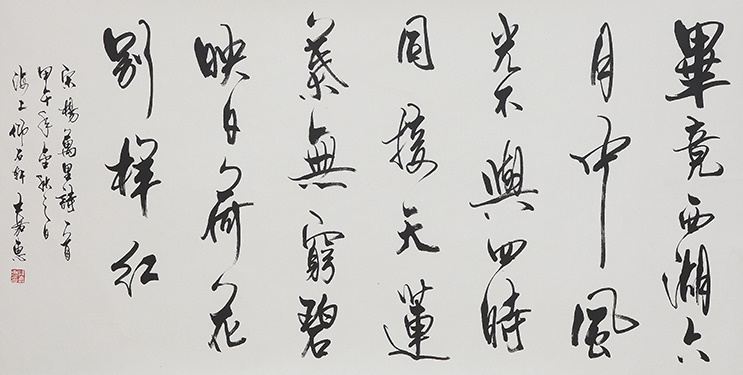 畢竟西湖六
月中風
光不與四時
同接天蓮
葉無窮碧
映日荷花
別樣紅
宋楊萬里詩一首
甲午年金秋之日
海上仰石軒